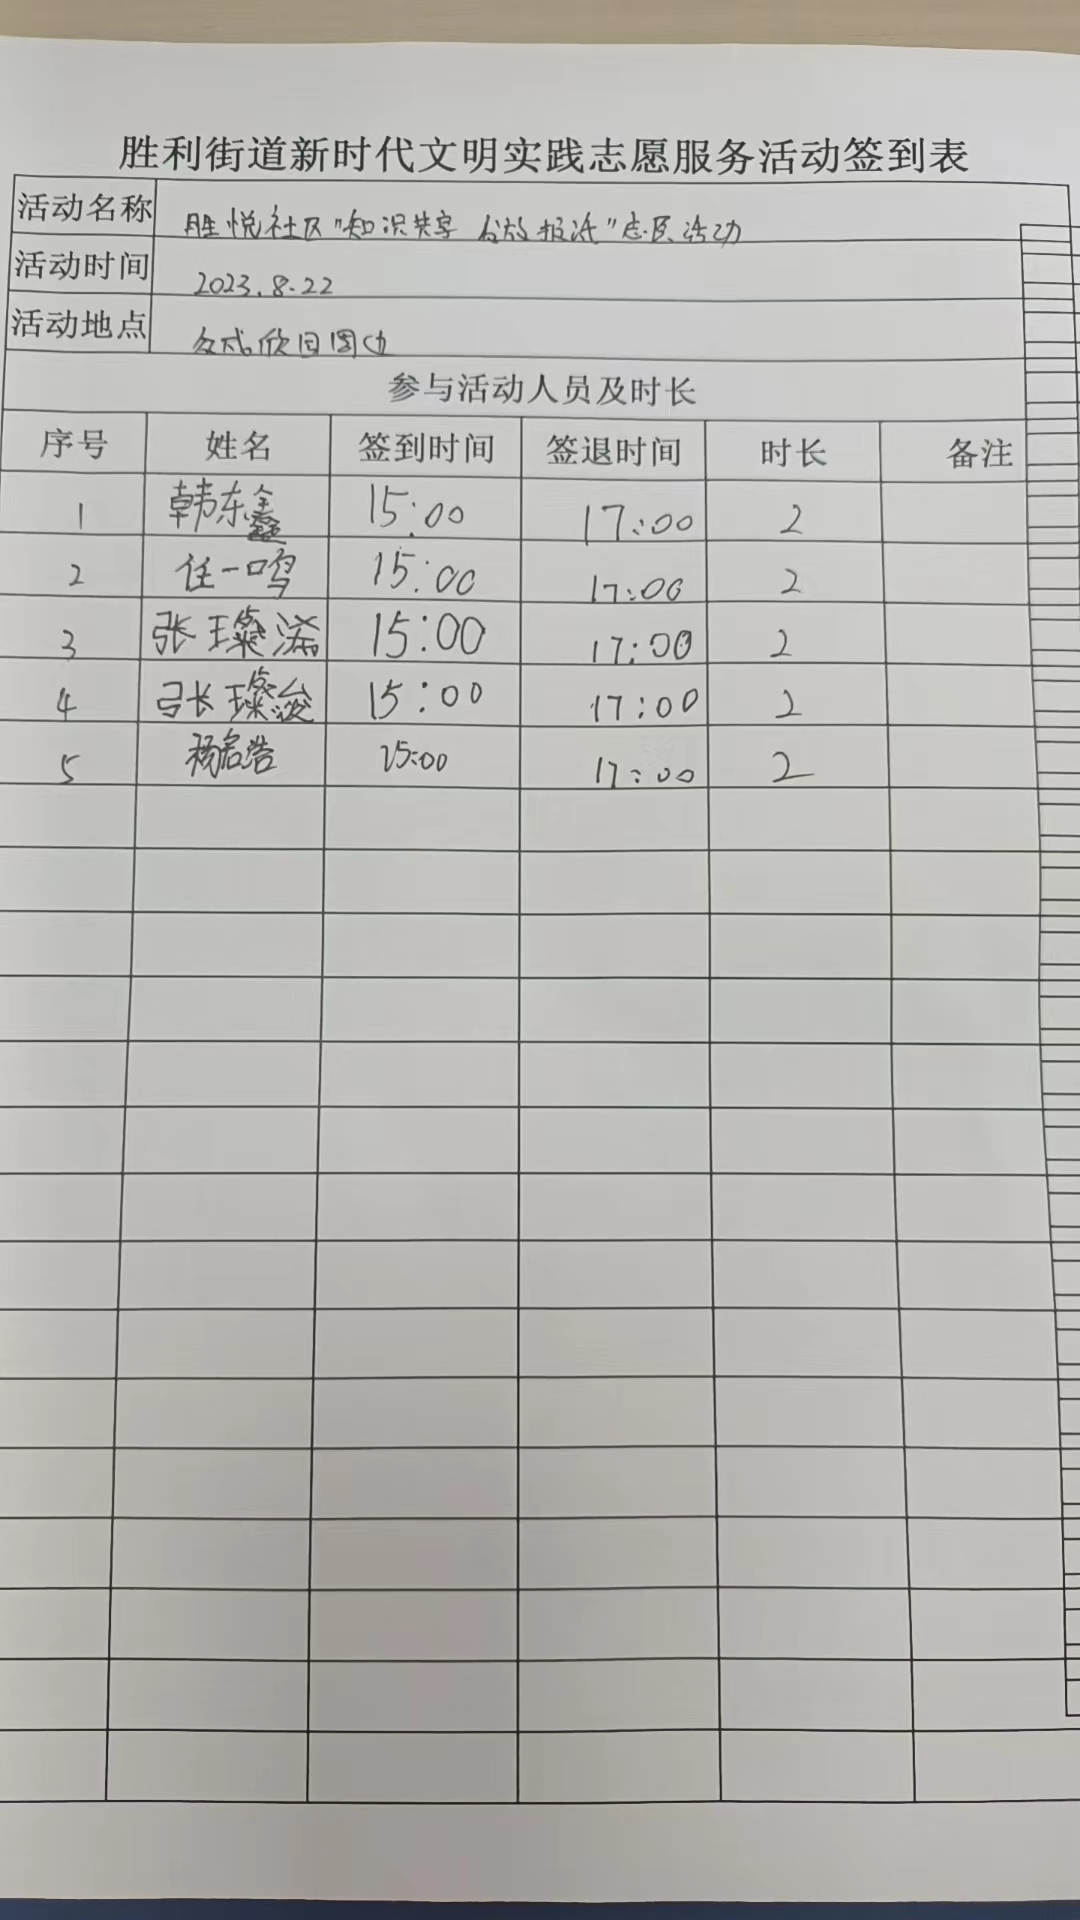 胜利街道新时代文明实践志愿服务活动签到表
活动名称 胜悦社区"知识共享 公放报纸"志愿活动
活动时间 2023.8.22
活动地点 欣园周边
参与活动人员及时长
序号 姓名 签到时间 签退时间 时长 备注
1 韩东鑫 15:00 17:00 2
2 任一鸣 15:00 17:00 2
3 张璨浠 15:00 17:00 2
4 张璨浚 15:00 17:00 2
5 杨启浩 15:00 17:00 2